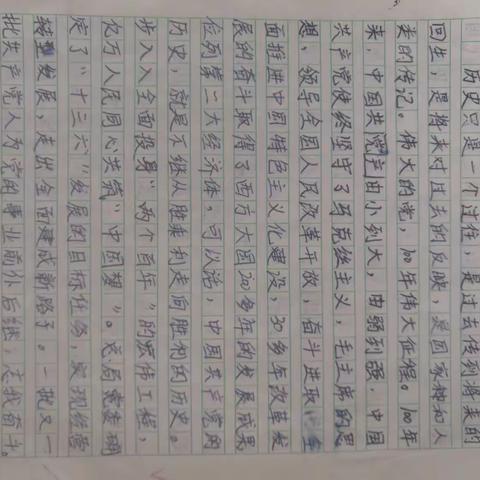 历史只是一个过往，是过去传到将来的
回生，是将来对过去的反映，是国家和人
类的传记。伟大的党，100年伟大征程。100年
来，中国共产党由小到大，由弱到强．中国
共产党使终坚守了马克思主义，毛主席的思
想，领导全国人民改革开放，奋斗进取
面推进中国特色主义化建设，30多年改革发
展的奋斗取得了西方大国200多年的发展成果
位列第二大经济体，可以说，中国共产党的
历史，就是不继从胜来利走向胜利的历史。
步入入全面投身“两个百年”的宏伟工程，
亿万人民同心共筑“中国梦”。总局党委制
定了“十三六”发展的目标任务，实现经营
转型发展，走出全面建成新路子。一批又一
批共产党人为党的事业前仆后继，志我奋斗。